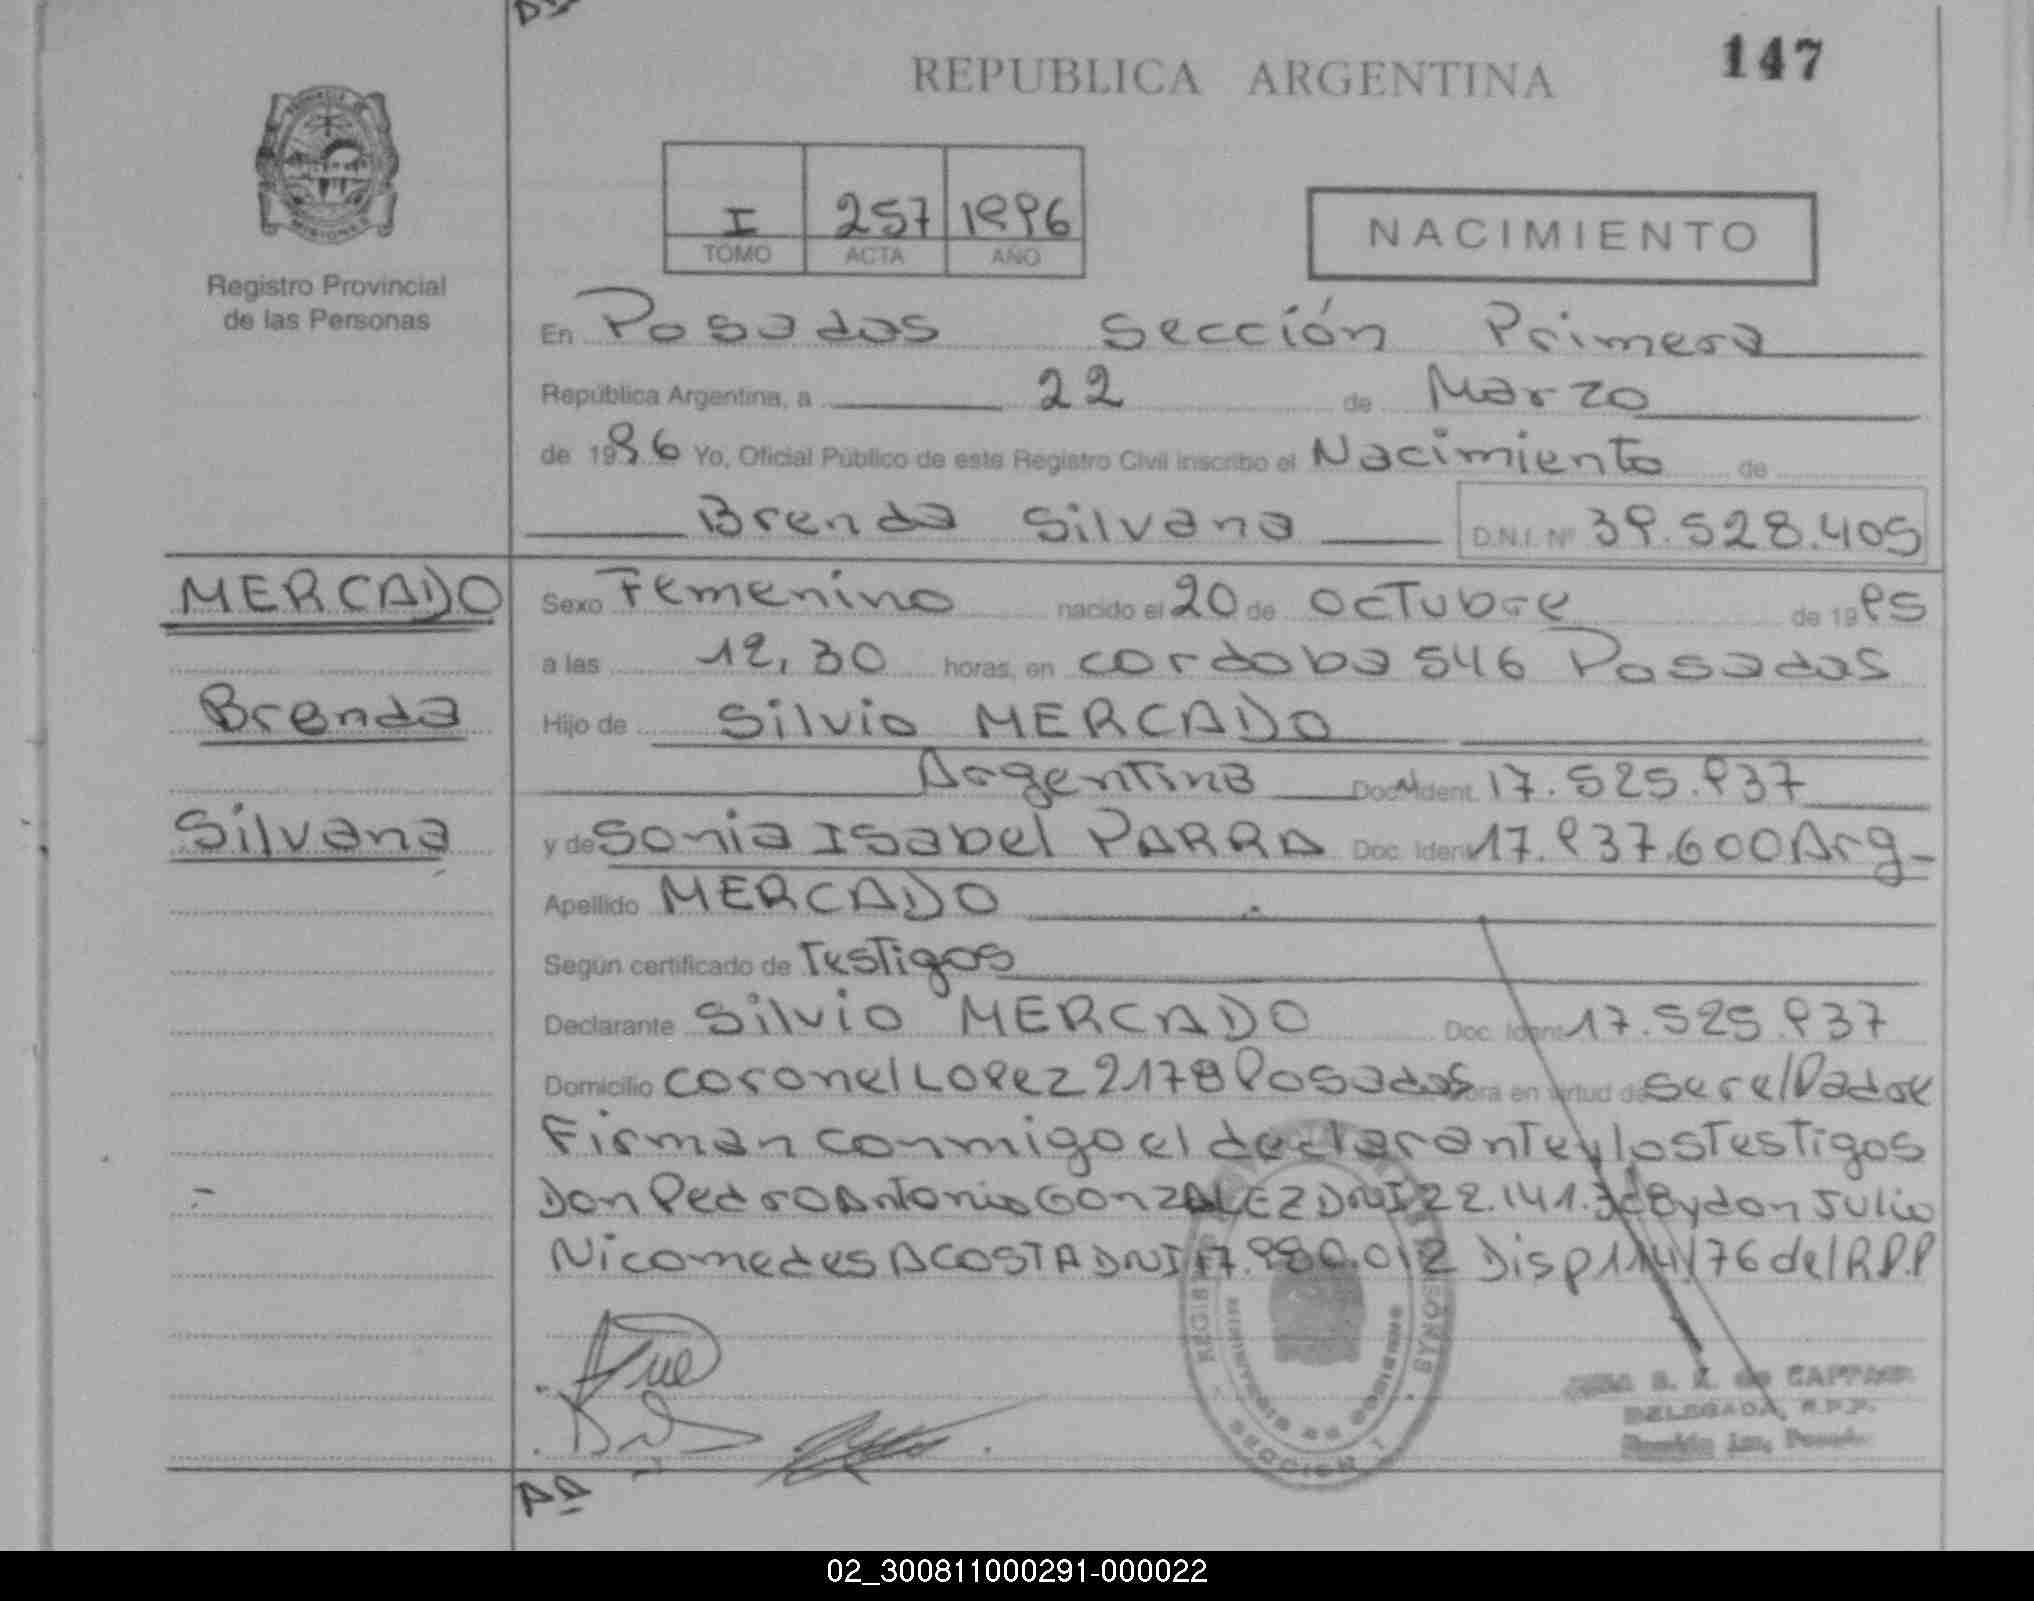 147
REPUBLICA ARGENTINA
I 257 1996
TOMO ACTA AÑO
NACIMIENTO
Registro Provincial
de las Personas
En Posadas Sección Primera
República Argentina, a 22 de Marzo
de 1996 Yo, Oficial Público de este Registro Civil inscribo el Nacimiento de
Brenda Silvana D.N.I. Nº 39.528.405
MERCADO
Brenda
Silvana
Sexo Femenino nacido el 20 de Octubre de 1995
a las 12,30 horas, en Cordoba 546 Posadas
Hijo de Silvio MERCADO
Argentina Doc. Ident. 17.525.937
y de Sonia Isabel PARRA Doc. Ident. 17.937.600 Arg
Apellido MERCADO
Según certificado de Testigos
Declarante Silvio MERCADO Doc. Ident. 17.525.937
Domicilio Coronel Lopez 2178 Posadas en virtud de ser el Padre
Firman conmigo el declarante y los Testigos
Don Pedro Antonio GONZALEZ DNI 22.141. y don Julio
Nicomedes ACOSTA DNI Disp 114/76 del R.P.P
SECCION 1
DELEGADA, R.P.P.
02_300811000291-000022